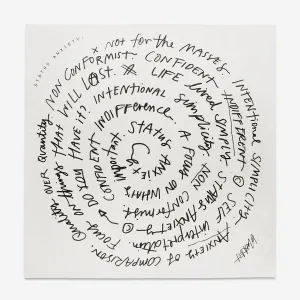 STATUS ANXIETY.
x NOT for the MASSES.
INTENTIONAL SIMPLICITY
ANXIETY of COMPARISON.
Quality OVER Quantity
NON CONFORMIST. CONFIDENT
INDIFFERENT © SELF
interpretation
Focus on things THAT WILL LAST.
LIFE lived simply.
STATUS ANXIETY
DO YOU HAVE IT?
INTENTIONAL
simplicity. NON CONFORMIST
CONFIDENT INDIFFERENCE.
A FOCUS ON WHATS
important
STATUS ANXIETY